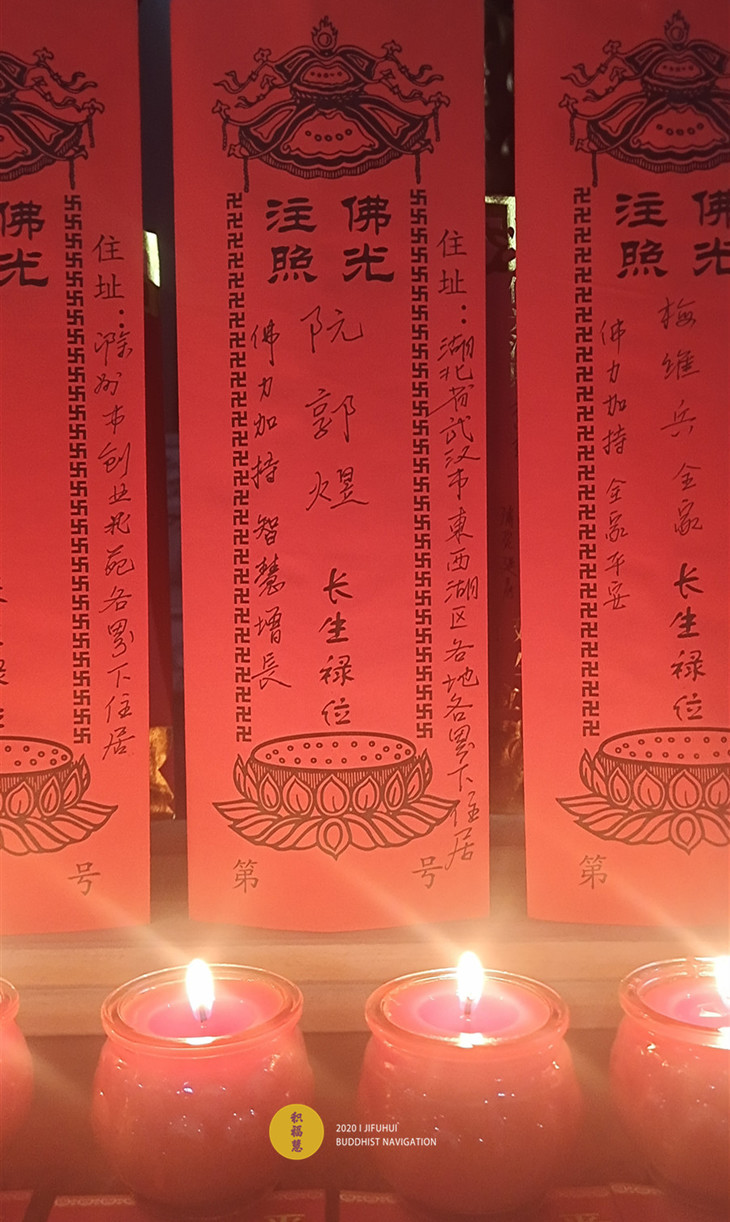 佛光
注照
住址：滁州市创业苑各累下住居
号
佛光
注照
住址：湖北省武汉市東西湖区各地各累下住居
阮郭煜 长生禄位
佛力加持 智慧增長
第 号
佛
注照
梅维兵全家 长生禄位
佛力加持 全家平安
第
积福慧
2020 I JIFUHUI
BUDDHIST NAVIGATION